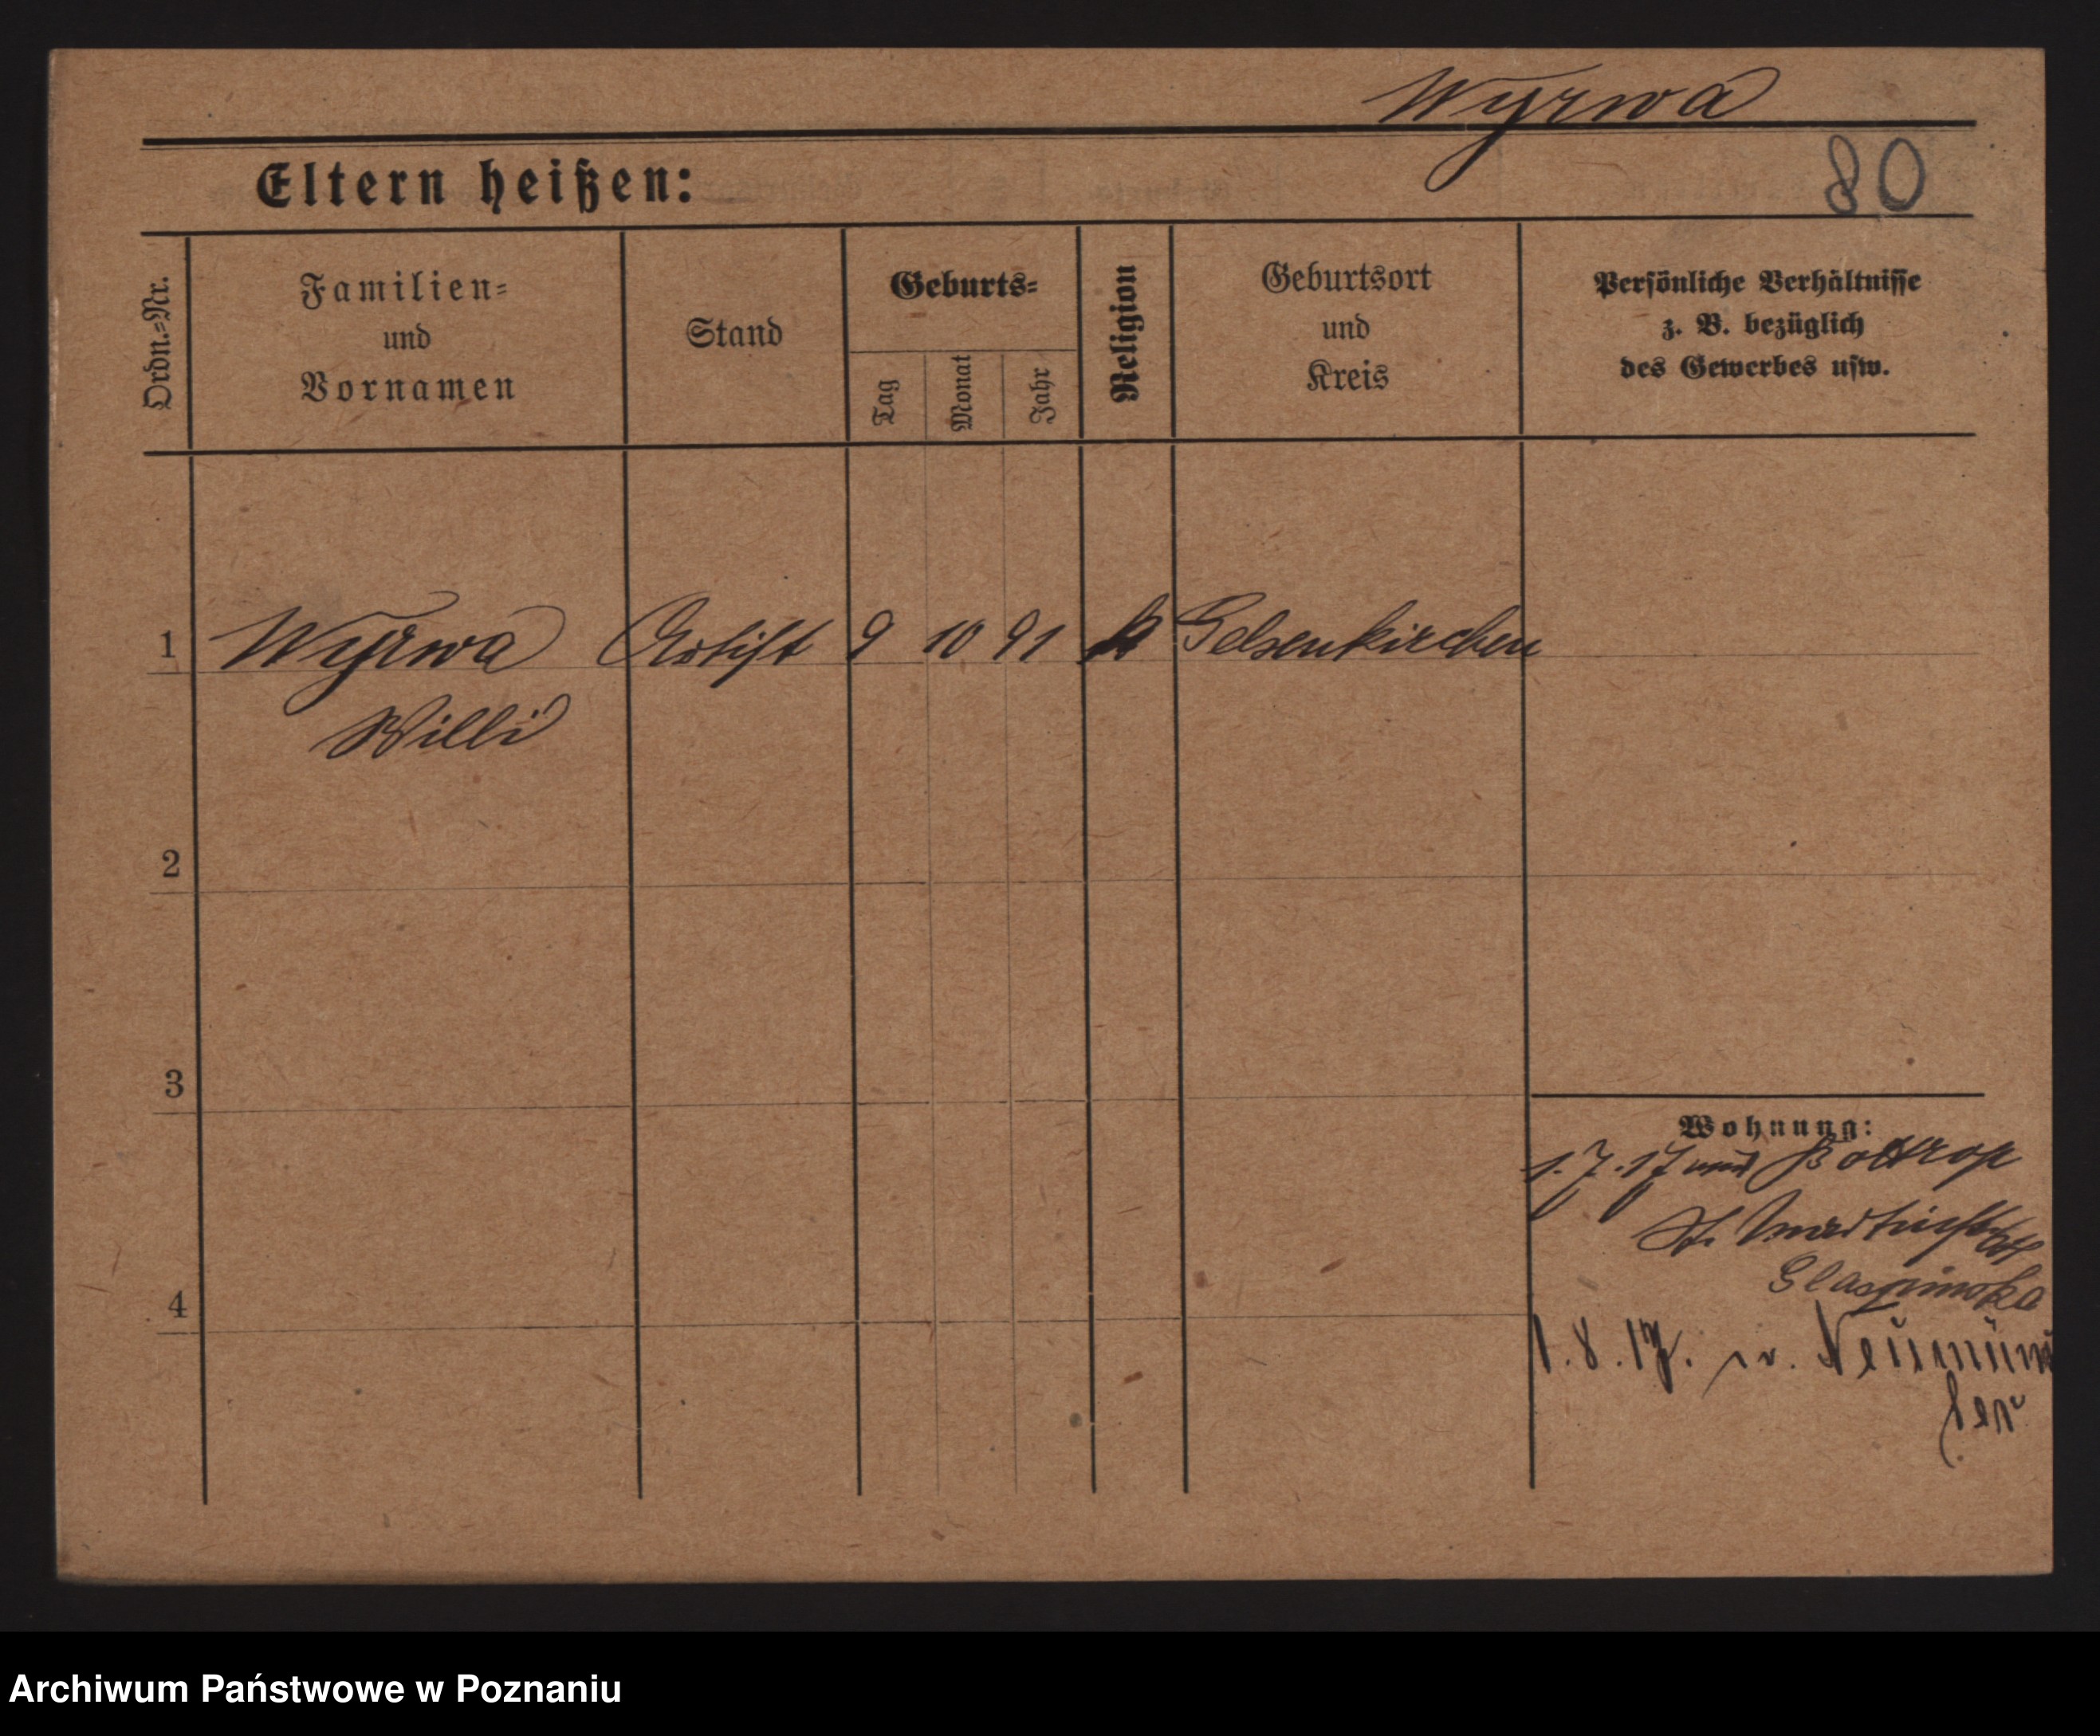 Wyrwa
80
Eltern heißen:
Ordn.-Nr.
Familien-
und
Vornamen
Stand
Geburts-
Tag
Monat
Jahr
Religion
Geburtsort
und
Kreis
Persönliche Verhältnisse
z. B. bezüglich
des Gewerbes usw.
1 Wyrwa Artist 9 10 91 k Gelsenkirchen
Willi
2
3
4
Wohnung:
1.7.17 Bottrop
St.
1.8.17. n. Neumün
ster
Archiwum Państwowe w Poznaniu